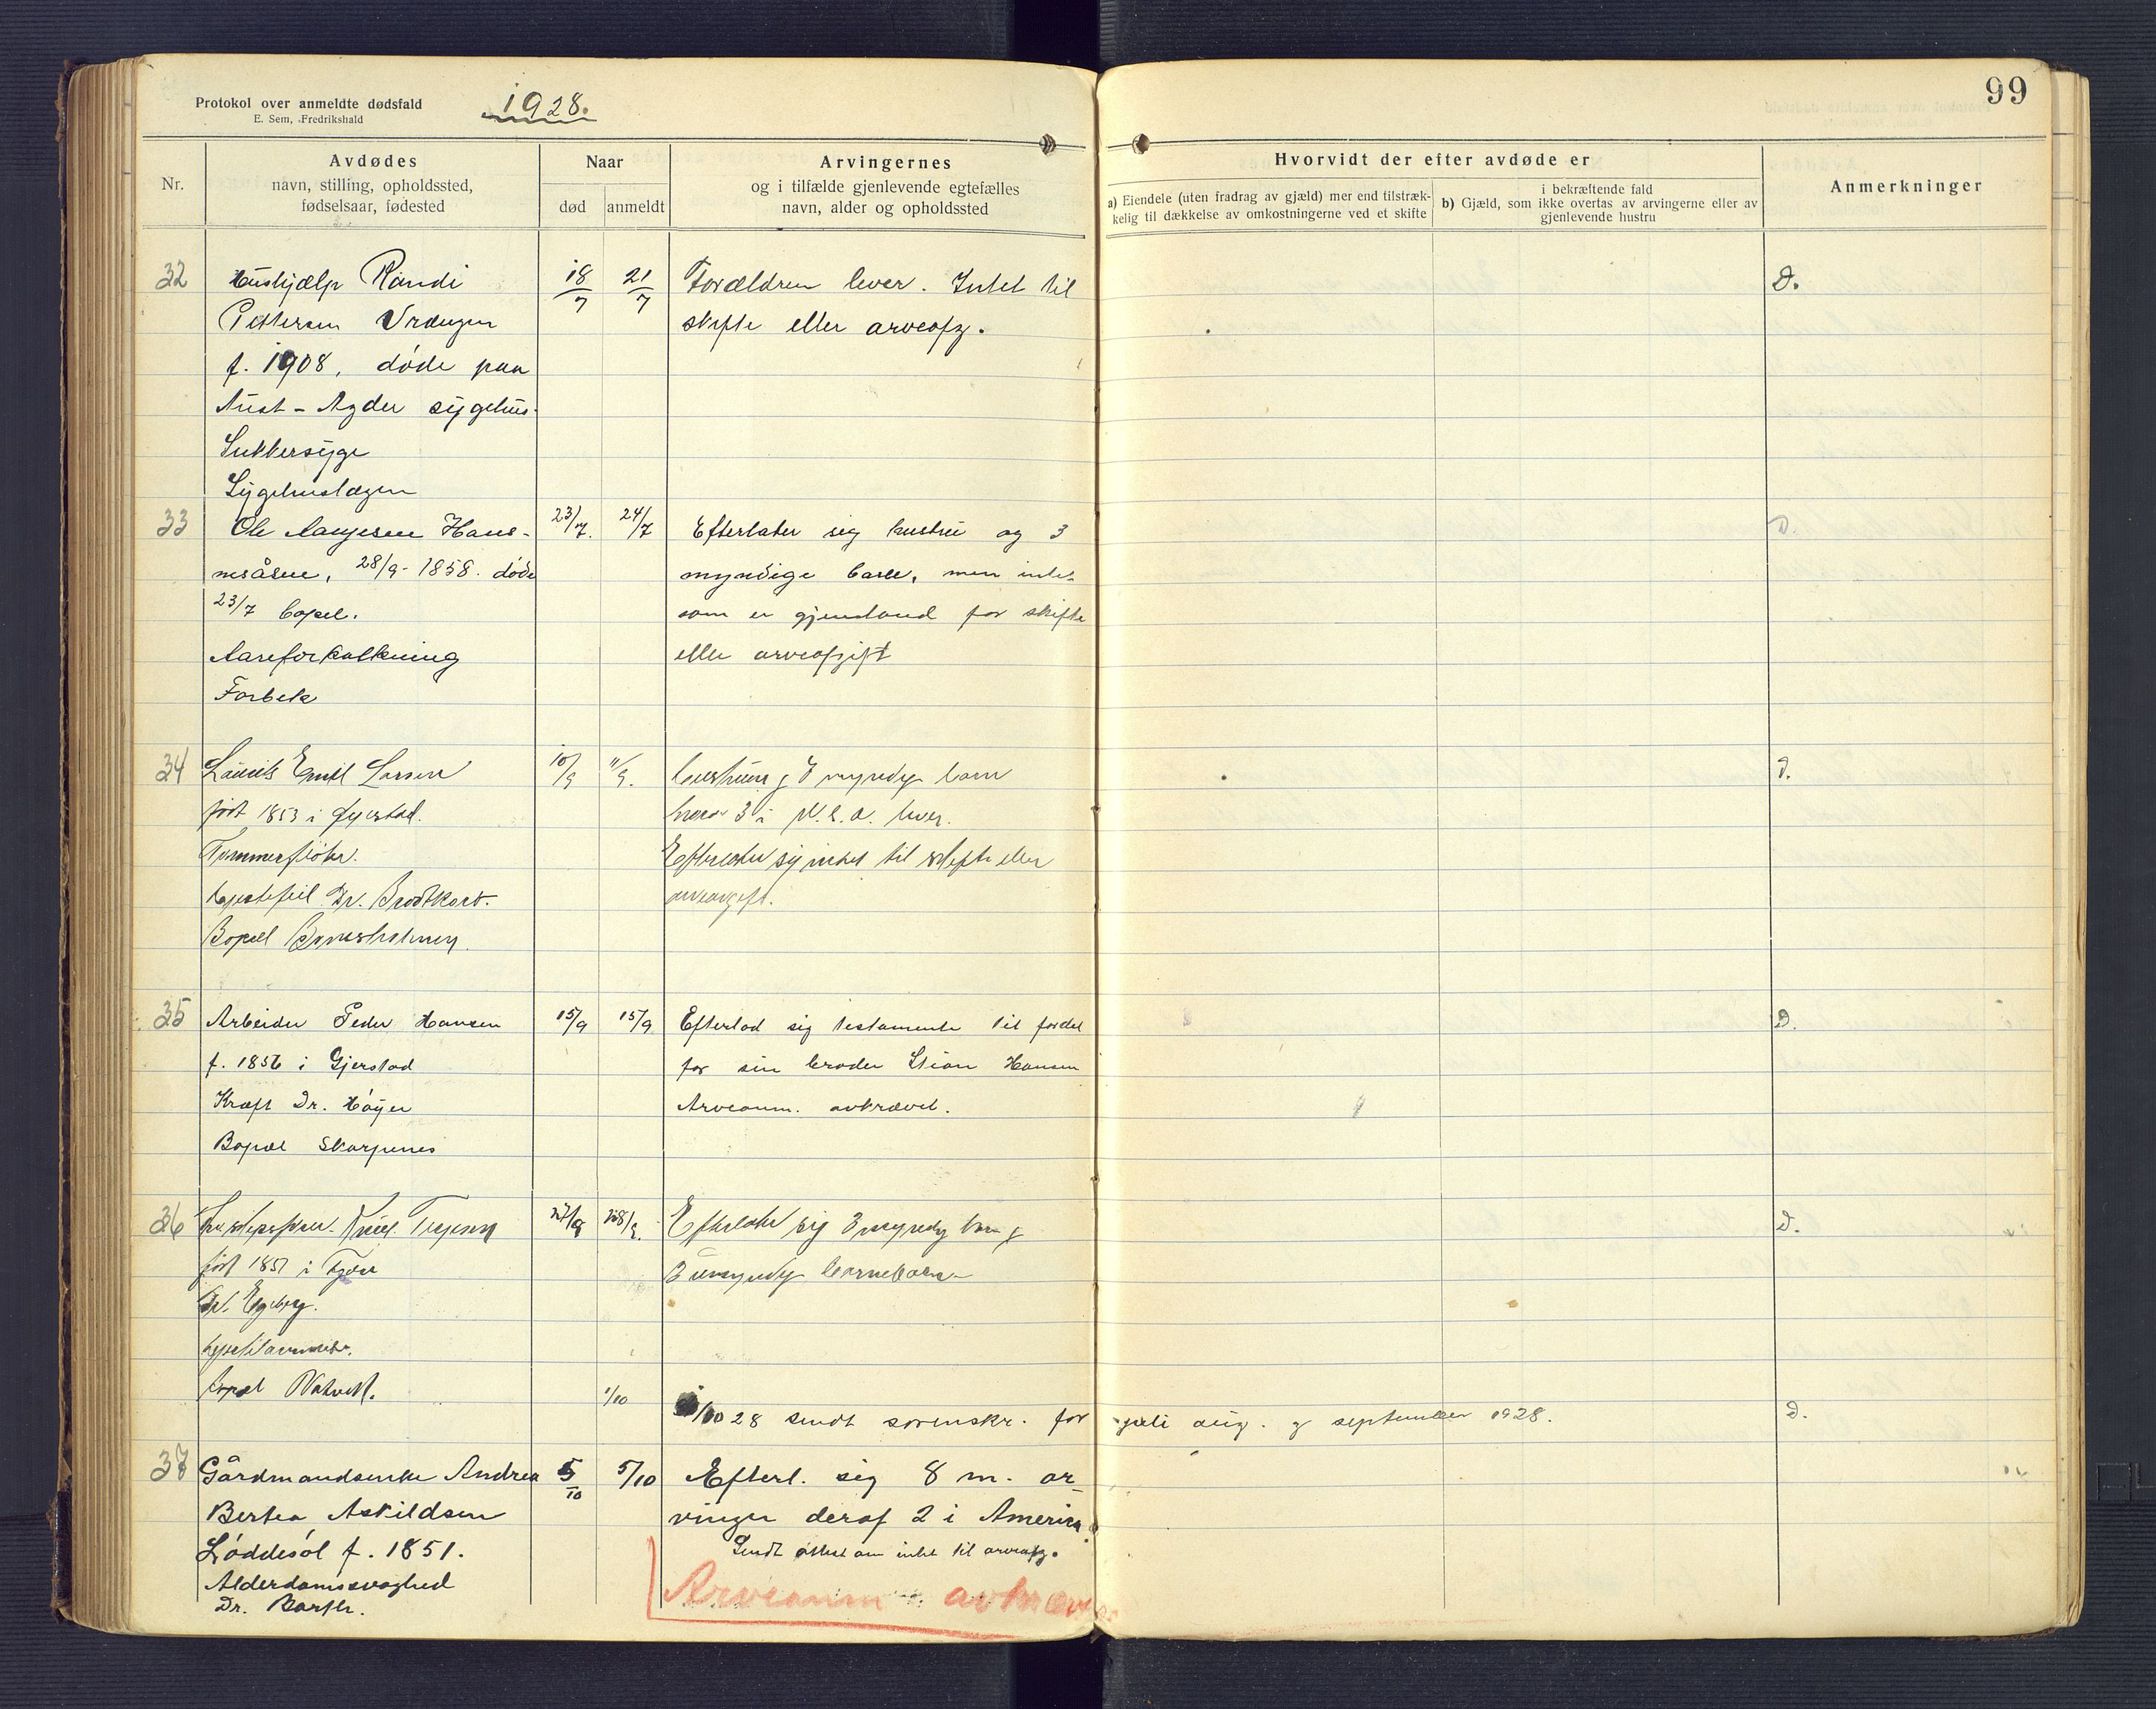 Protokol over anmeldte dødsfald
E. Sem, Fredrikshald
1928.
99
Nr.
Avdødes
navn, stilling, opholdssted,
fødselsaar, fødested
Naar
død
anmeldt
Arvingernes
og i tilfælde gjenlevende egtefælles
navn, alder og opholdssted
Hvorvidt der efter avdøde er
a) Eiendele (uten fradrag av gjæld) mer end tilstræk-
kelig til dækkelse av omkostningerne ved et skifte
i bekræftende fald
b) Gjæld, som ikke overtas av arvingerne eller av
gjenlevende hustru
Anmerkninger
32
Hushjælp Randi
Pettersen Vrængen
f. 1908, døde paa
Aust-Agder sygehus.
Sukkersyge
Sygehuslægen
18/7
21/7
Forældren lever. Intet til
skifte eller arveafg.
D.
33
Ole Aanjesen Hans-
nesåsen, 28/9-1858. døde
23/7 bopel.
Aareforkalkning
Forbek
23/7.
24/7
Efterlater sig hustru og 3
myndige barn, men intet
som er gjenstand for skifte
eller arveafgift
D.
34
Laurits Emil Larsen
født 1853 i Gjerstad.
Tømmerfløter.
Hjertefeil Dr. Brodtkorb.
Bopæl
10/9
11/9.
hustru og 8 myndig barn
hvorav 3 i U.S.A. lever.
Efterlater sig intet til skifte eller
arveavgift.
D.
35
Arbeider Peder Hansen
f. 1856 i Gjerstad
Kræft Dr. Høyer
Bopæl Skarpnes
15/9
15/9
Efterlod sig testamente til fordel
for sin broder Stian Hansen
Arveanm. avkrævet.
D.
36
født 1851 i
Dr. Egeberg.
bopæl Natvik.
27/9
28/9.
Efterlater sig 3 myndig barn og
3 umyndig barnebarn
D.
1/10
1/10 28 sendt sorenskr. for juli aug. og september 1928.
D.
37
Gårdmandsenke Andrea
Bertea Askildsen
Løddesøl f. 1851.
Alderdomssvaghed
Dr. Barth.
5/10
5/10
Efterl. sig 8 m. ar-
vinger deraf 2 i Amerika
Sendt attest om intet til arveafg.
Arveanm. avkrævet